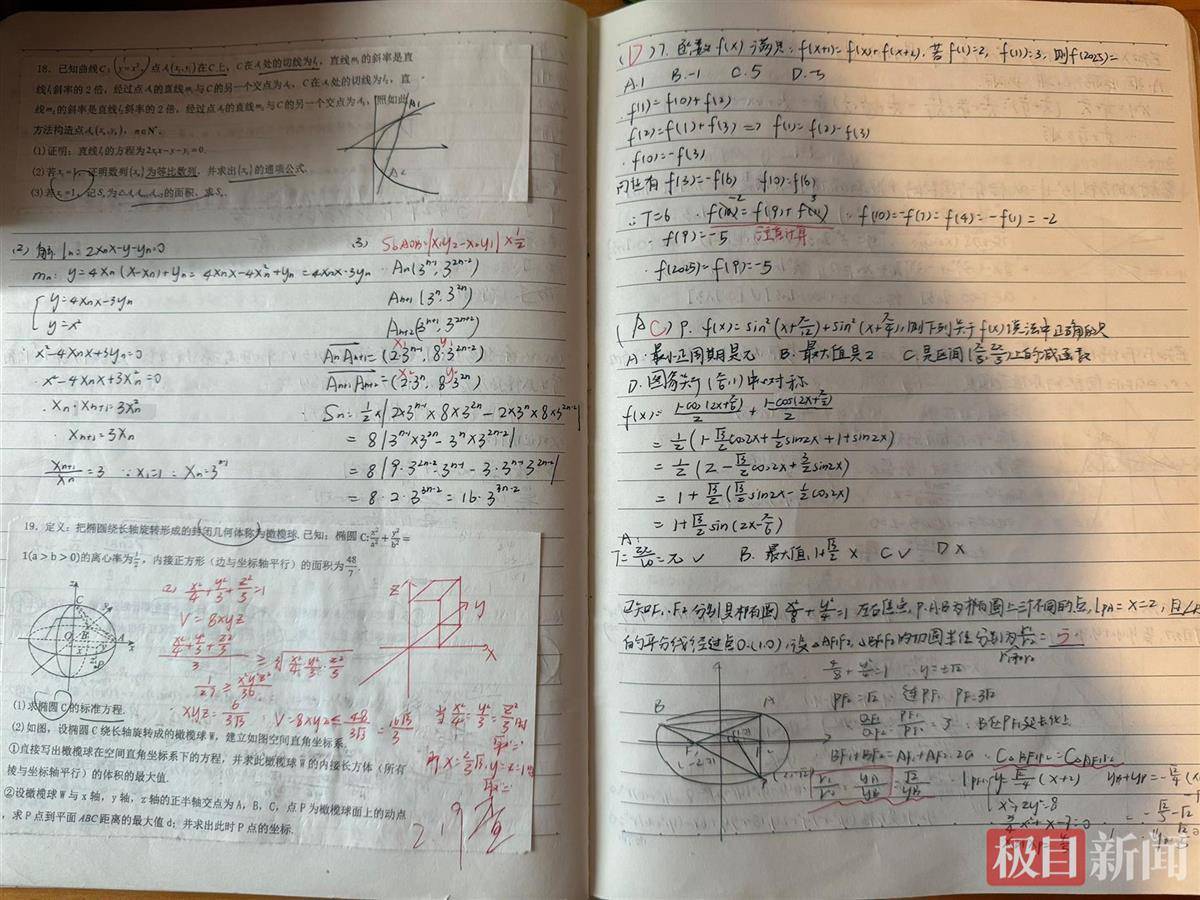 18. 已知曲线C: y=x², 点A₁(x₁,y₁)在C上, C在A₁处的切线为l₁, 直线m₁的斜率是直
线l₁斜率的2倍, 经过点A₁的直线m₁与C的另一个交点为A₂, C在A₂处的切线为l₂, 直
线m₂的斜率是直线l₂斜率的2倍, 经过点A₂的直线m₂与C的另一个交点为A₃, 照如此
方法构造点Aₙ(xₙ,yₙ), n∈N*.
(1)证明: 直线lₙ的方程为2xₙx-y-yₙ=0.
(2)若x₁=1, 证明数列{xₙ}为等比数列, 并求出{xₙ}的通项公式.
(3)若x₁=1, 记Sₙ为△AₙAₙ₊₁Aₙ₊₂的面积, 求Sₙ.
(2) 解 lₙ: 2xₙx-y-yₙ=0
mₙ: y=4xₙ(x-xₙ)+yₙ=4xₙx-4xₙ²+yₙ=4xₙx-3yₙ
y=4xₙx-3yₙ
y=x²
x²-4xₙx+3yₙ=0
x²-4xₙx+3xₙ²=0
xₙ·xₙ₊₁=3xₙ²
xₙ₊₁=3xₙ
xₙ₊₁/xₙ=3 ∵x₁=1 ∴xₙ=3ⁿ⁻¹
(3) S△AOB=|x₁y₂-x₂y₁|×1/2
Aₙ(3ⁿ⁻¹, 3²ⁿ⁻²)
Aₙ₊₁(3ⁿ, 3²ⁿ)
Aₙ₊₂(3ⁿ⁺¹, 3²ⁿ⁺²)
AₙAₙ₊₁=(2·3ⁿ⁻¹, 8·3²ⁿ⁻²)
Aₙ₊₁Aₙ₊₂=(2·3ⁿ, 8·3²ⁿ)
Sₙ=1/2×|2×3ⁿ⁻¹×8×3²ⁿ-2×3ⁿ×8×3²ⁿ⁻²|
=8|3ⁿ⁻¹×3²ⁿ-3ⁿ×3²ⁿ⁻²|
=8|9·3²ⁿ⁻²·3ⁿ⁻¹-3·3ⁿ⁻¹·3²ⁿ⁻²|
=8·2·3³ⁿ⁻²=16·3³ⁿ⁻²
19. 定义: 把椭圆绕长轴旋转形成的封闭几何体称为橄榄球. 已知: 椭圆C: x²/a²+y²/b²=
1(a>b>0)的离心率为1/2, 内接正方形(边与坐标轴平行)的面积为48/7.
2) x²/4+y²/3+z²/3=1
V=8xyz
(x²/4+y²/3+z²/3)/3 ≥ ³√(x²/4·y²/3·z²/3)
1/27≥x²y²z²/36
xyz≤6/(3√3) ∴V=8xyz≤48/(3√3)=16√3/3
当x²/4=y²/3=z²/3
(1)求椭圆C的标准方程.
(2)如图, 设椭圆C绕长轴旋转成的橄榄球W, 建立如图空间直角坐标系.
①直接写出橄榄球在空间直角坐标系下的方程, 并求此橄榄球W的内接长方体(所有
棱与坐标轴平行)的体积的最大值.
②设橄榄球W与x轴, y轴, z轴的正半轴交点为A, B, C, 点P为橄榄球面上的动点
, 求P点到平面ABC距离的最大值d; 并求出此时P点的坐标.
(D)7. 函数f(x)满足: f(x+1)=f(x)+f(x+2). 若f(1)=2, f(11)=3, 则f(2025)=
A.1 B.-1 C.5 D.-5
f(1)=f(0)+f(2)
f(2)=f(1)+f(3) => f(1)=f(2)-f(3)
f(0)=-f(3)
同理有f(3)=-f(6) f(0)=f(6)
∴T=6 f(10)=f(9)+f(11) ∵f(10)=-f(7)=f(4)=-f(1)=-2
∴f(9)=-5 注意计算
f(2025)=f(9)=-5
(AC)9. f(x)=sin²(x+π/12)+sin²(x+π/4), 则下列关于f(x)说法中正确的是
A.最小正周期是π B.最大值是2 C.是区间(π/3,2π/3)上的减函数
D.图象关于(π/6,1)中心对称
f(x)=(1-cos(2x+π/6))/2+(1-cos(2x+π/2))/2
=1/2(1-√3/2cos2x+1/2sin2x+1+sin2x)
=1/2(2-√3/2cos2x+3/2sin2x)
=1+√3/2(√3/2sin2x-1/2cos2x)
=1+√3/2sin(2x-π/6)
A: T=2π/ω=π √ B. 最大值, 1+√3/2 × C√ D×
已知F₁, F₂分别是椭圆x²/8+y²/4=1左右焦点, P.A.B为椭圆上三个不同的点, lPA=x=2, 且∠
的平分线经过点Q(1,0), 设△AF₁F₂, △BF₁F₂内切圆半径分别为
x²/8+y²/4=1 y=±√2
PF₂=√2 连PF₁ PF₁=3√2
QF₁/QF₂=PF₁/PF₂=3 ∴B在PF₁延长线上
BF₁+BF₂=AF₁+AF₂=2a ∴C△BF₁F₂=C△AF₁F₂
极目新闻